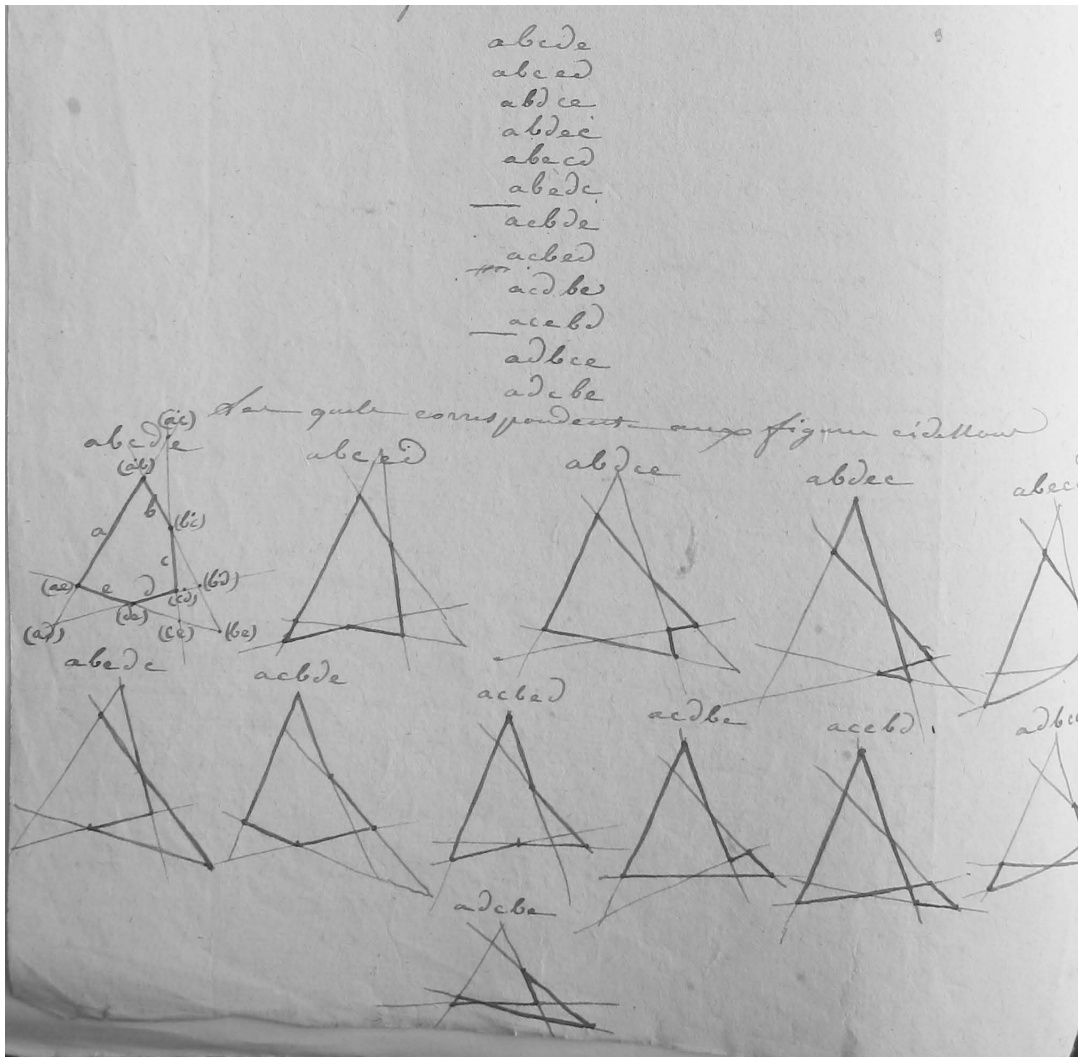 abcde
abced
abdce
abdec
abecd
abedc
acbde
acbed
acdbe
acebd
adbce
adcbe
correspondent aux figures cidessous
abcde
(ac)
(ab)
b
(bc)
a
c
(ae)
e
d
(cd)
(bd)
(de)
(ad)
(ce)
(be)
abced
abdce
abdec
abec
abedc
acbde
acbed
acdbe
acebd
adbce
adcbe